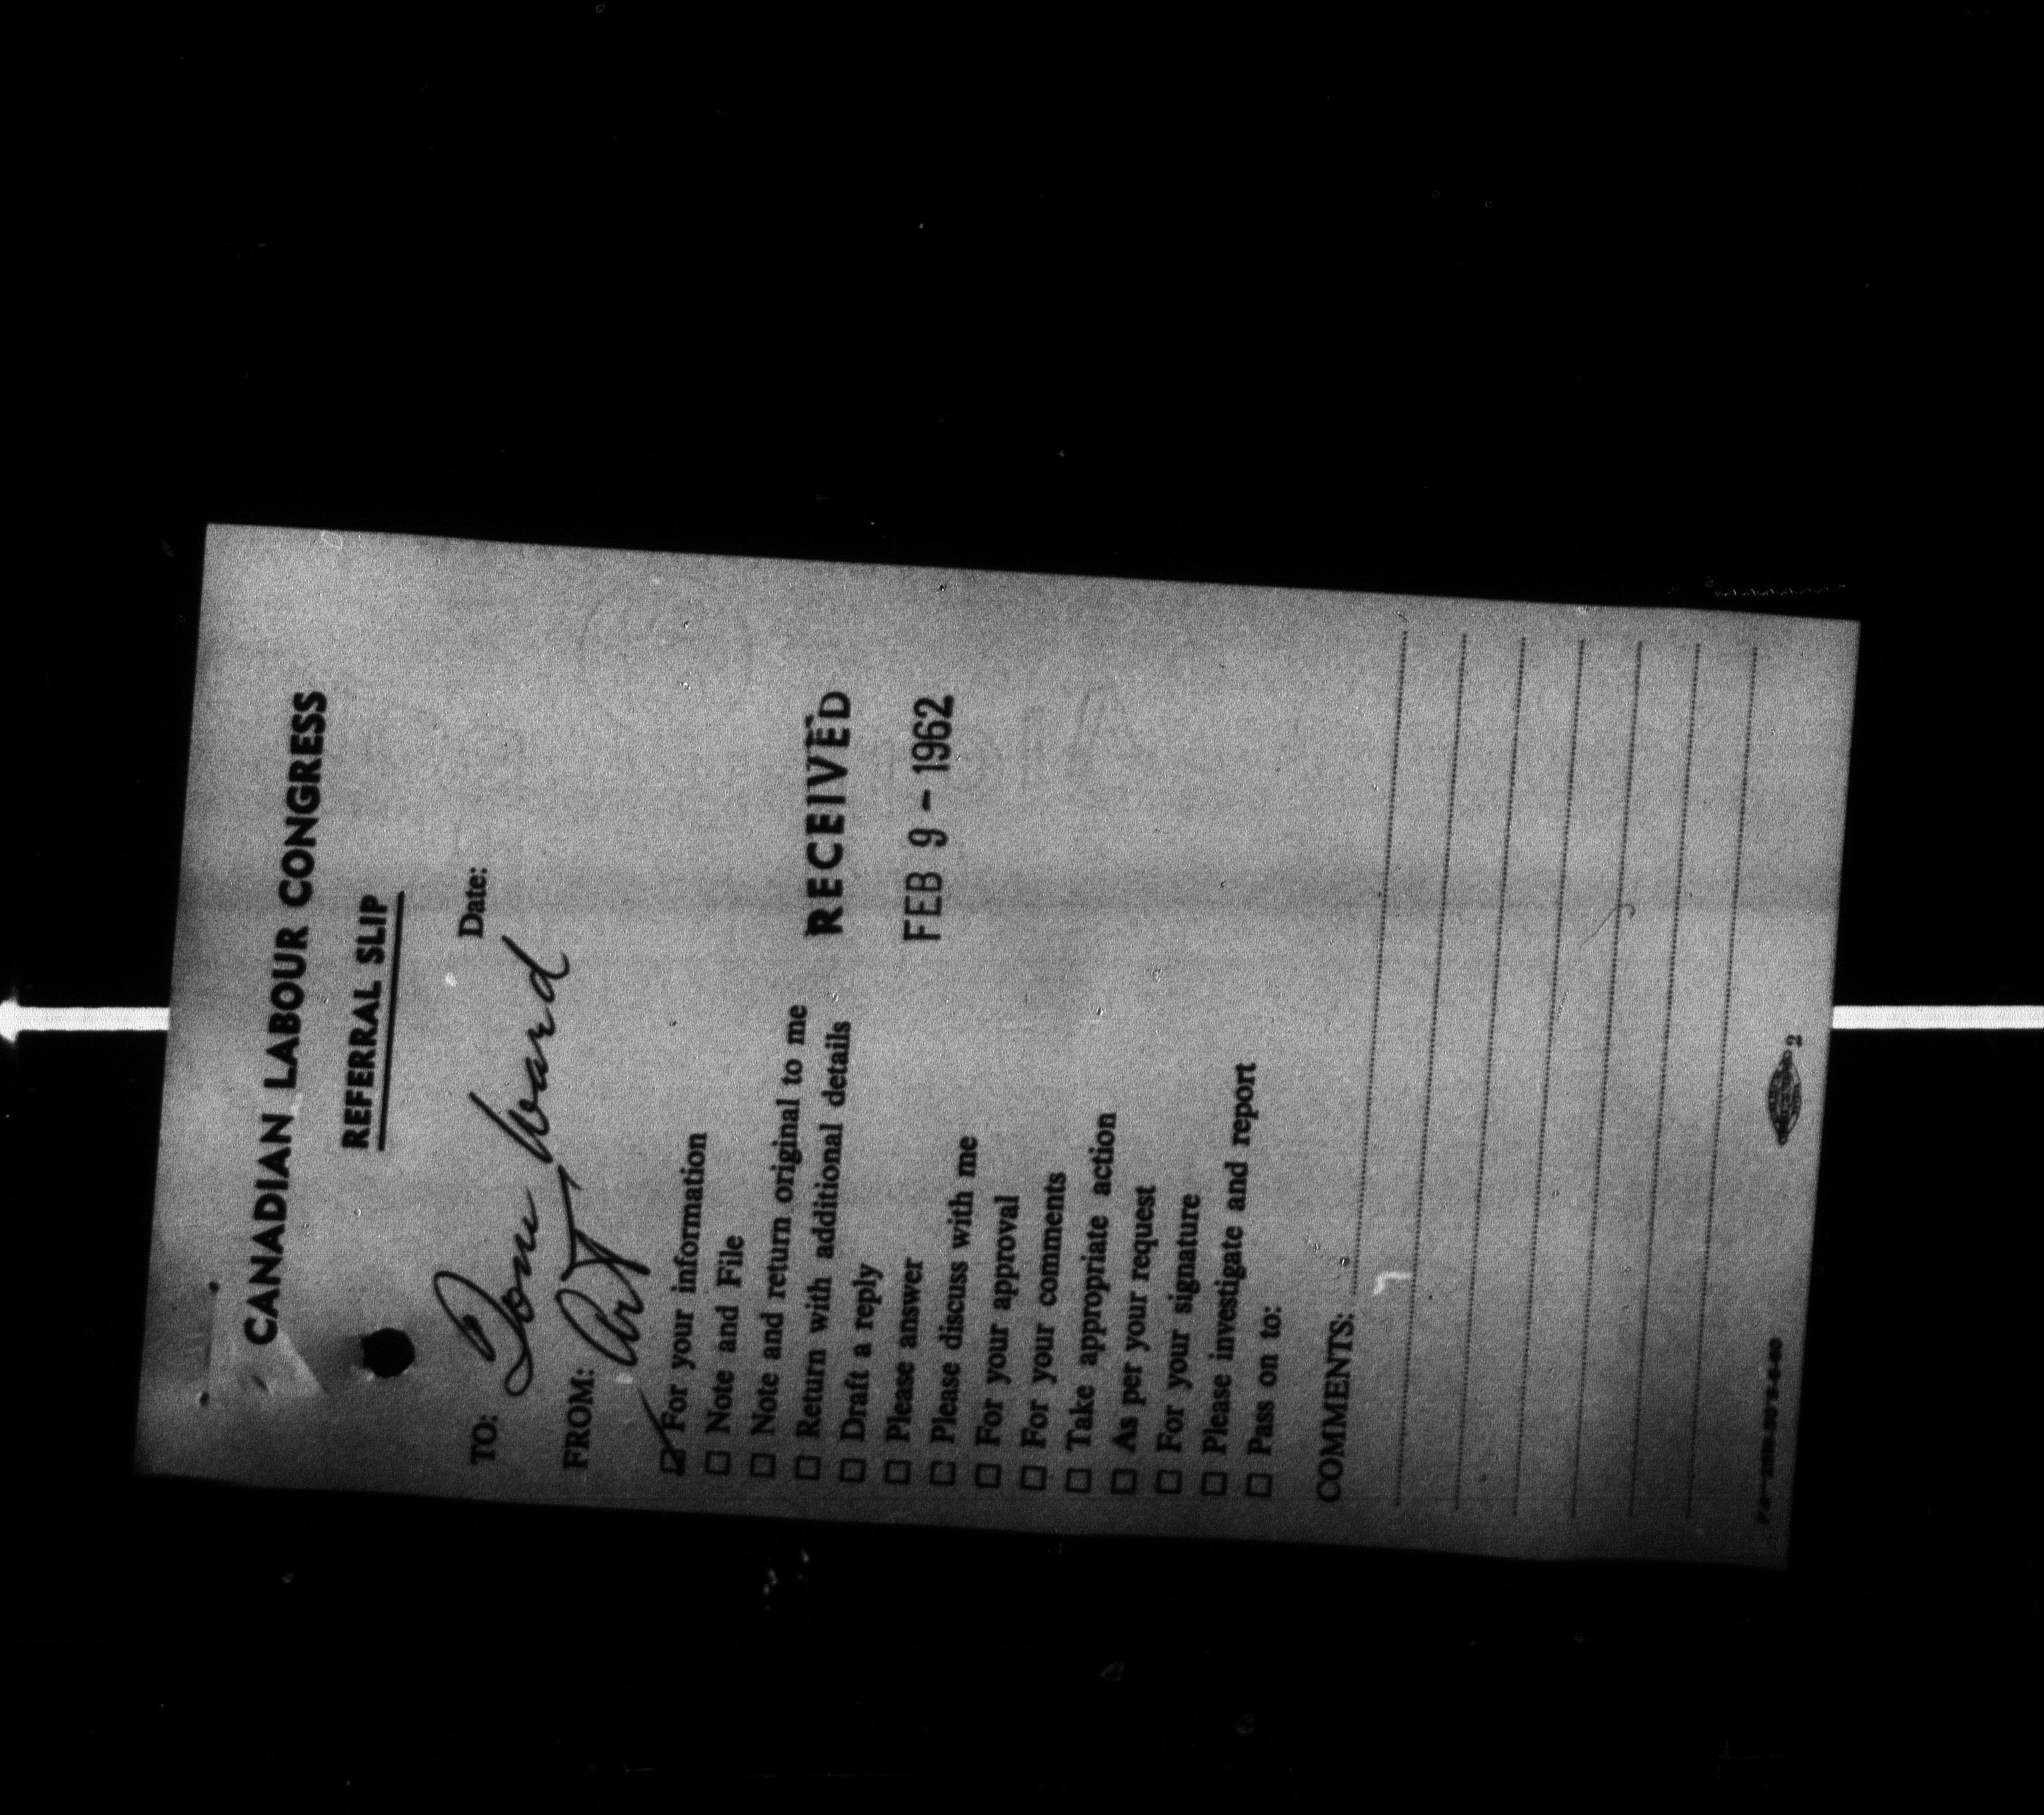 CANADIAN LABOUR CONGRESS
REFERRAL SLIP
TO: Tom Ward Date:
FROM: Art
☑ For your information
☐ Note and File
☐ Note and return original to me
☐ Return with additional details
☐ Draft a reply
☐ Please answer
☐ Please discuss with me
☐ For your approval
☐ For your comments
☐ Take appropriate action
☐ As per your request
☐ For your signature
☐ Please investigate and report
☐ Pass on to:
RECEIVED
FEB 9 - 1962
COMMENTS:
2